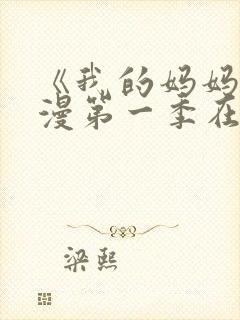 《我的妈妈
漫第一季在
梁熙